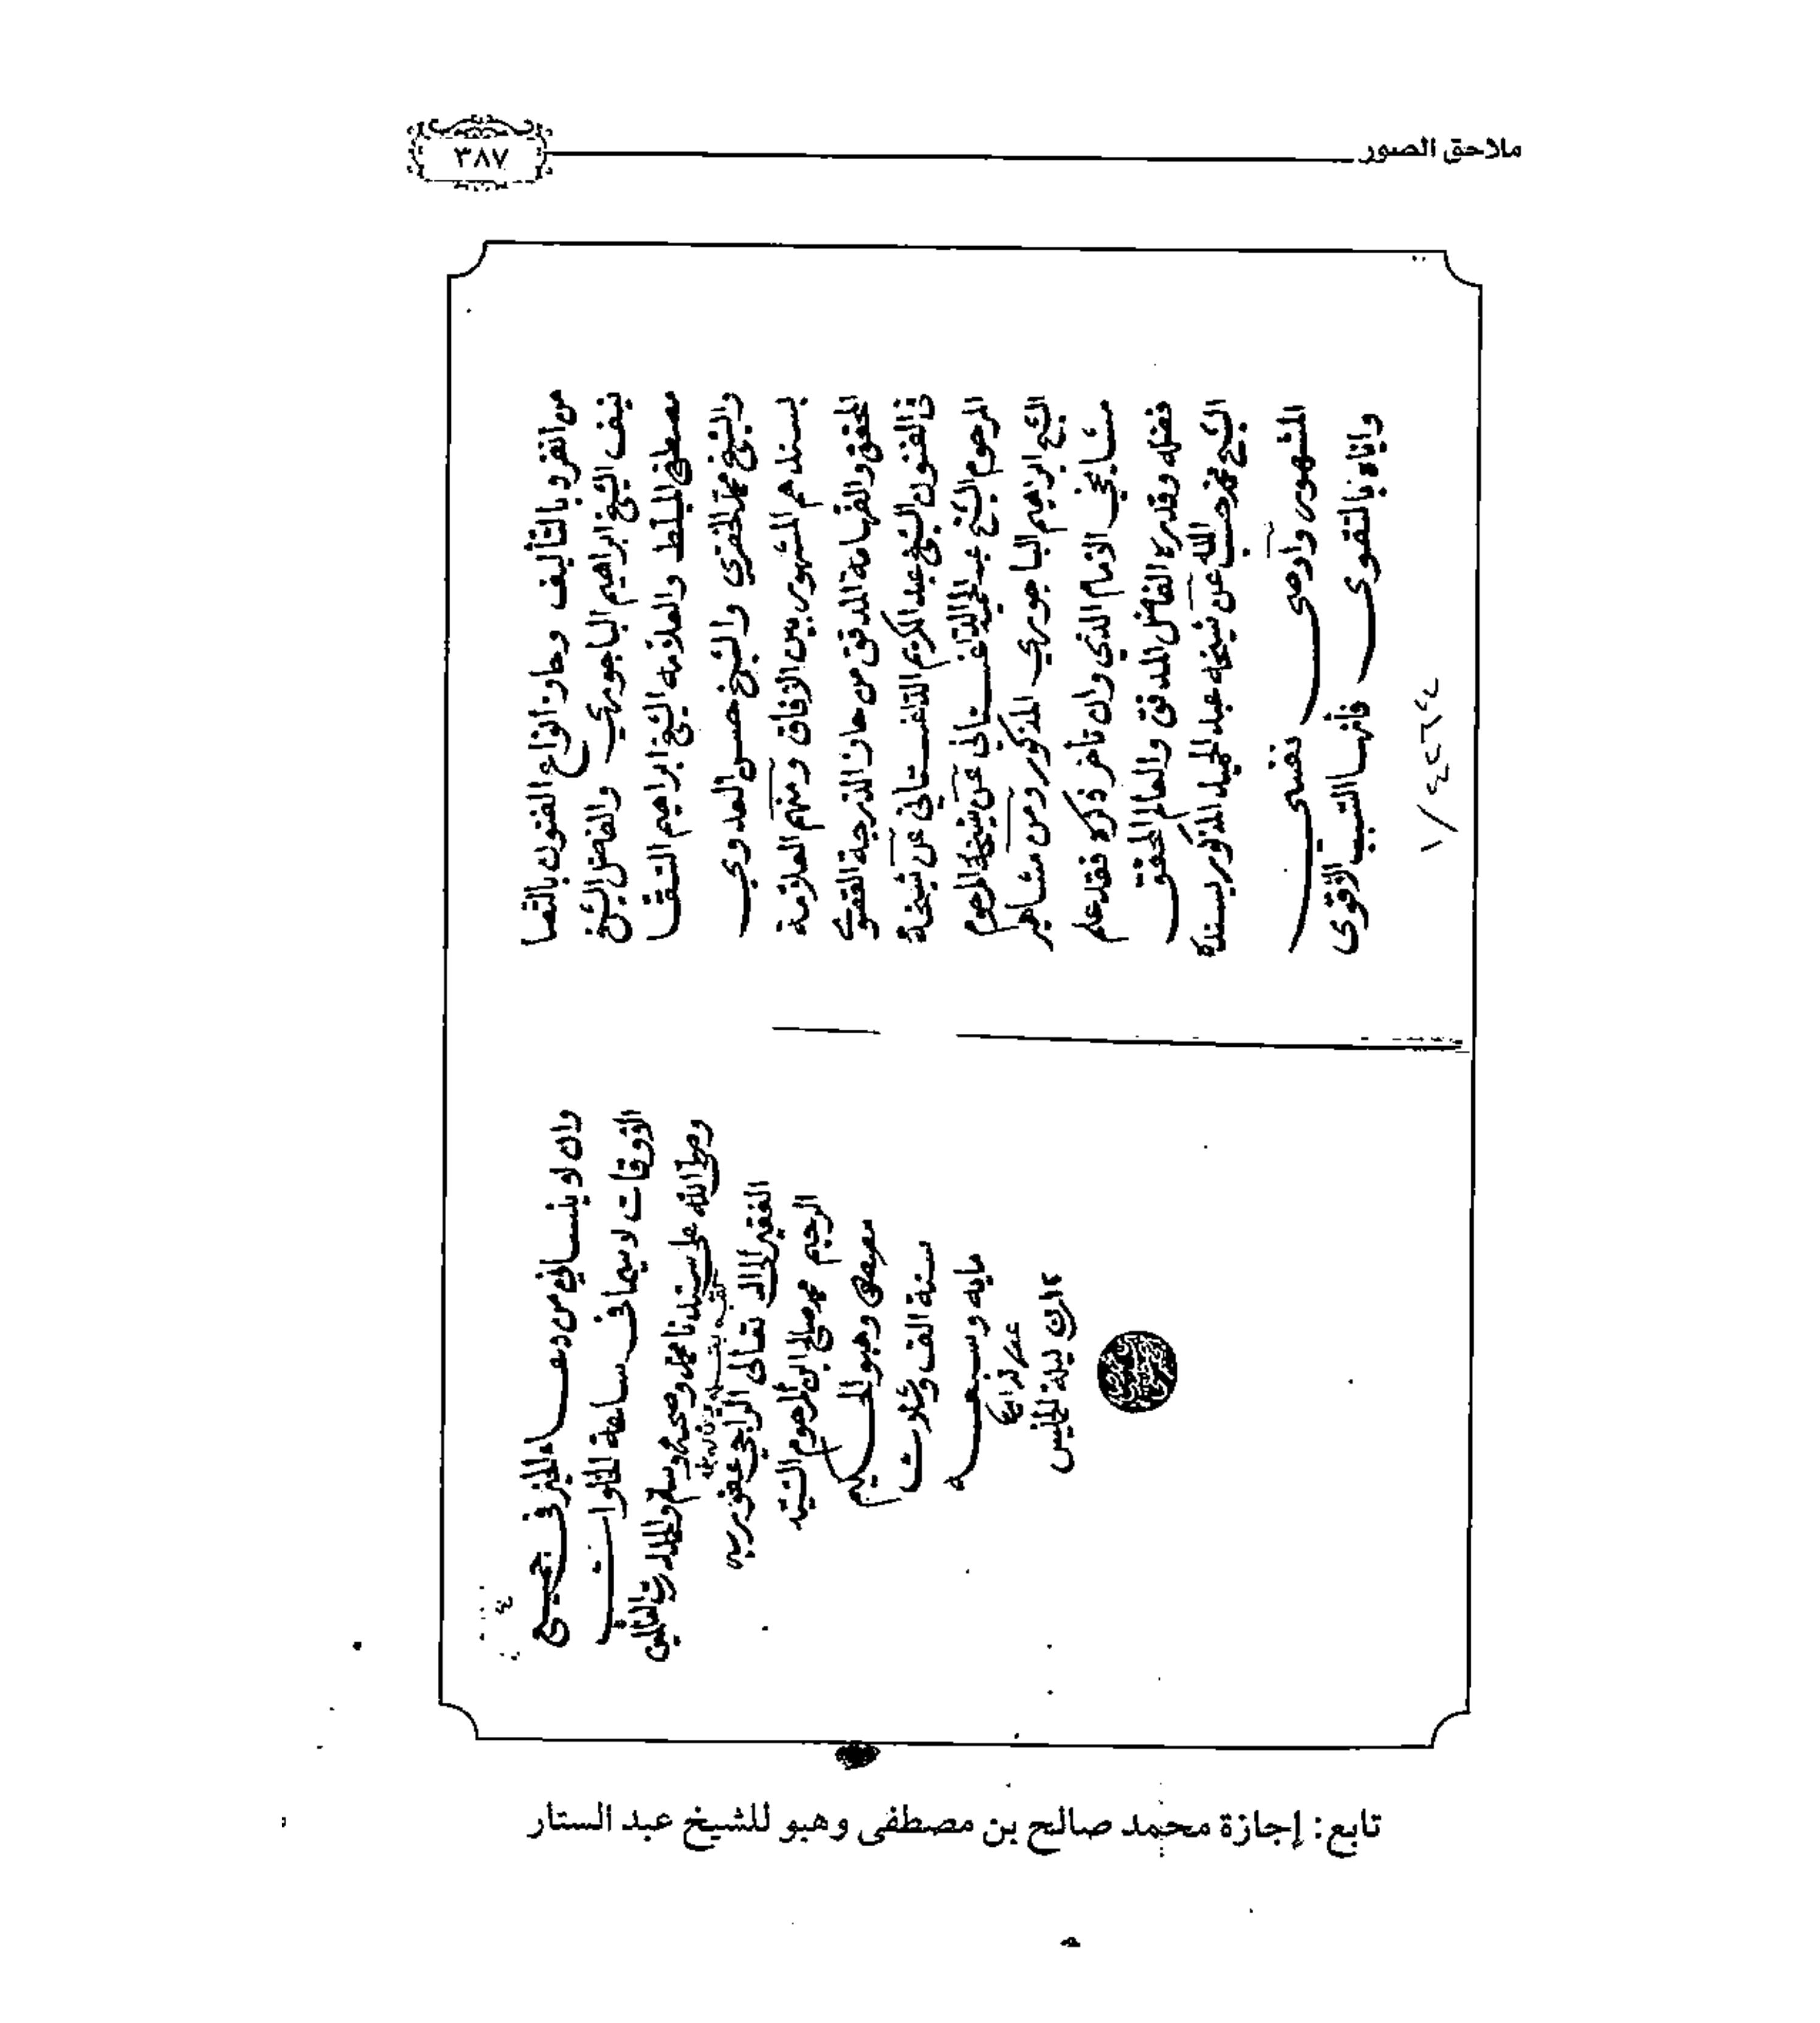 ملاحق الصور
٣٨٧
من انفرد بالتأليف وحاز انواع الفنون بالتما
نيف الشيخ ابراهيم الباجوري والفاضل الشيخ
مصطفى المبلط والعلامه الشيخ ابراهيم السقا
والشيخ محمد الخضري والشيخ حسن العدوي
بسندهم المشهور بين الافاق ومنهم العلامة
المحقق والفهامة المدقق من حاز الدرجة القصوى
في الفنون الشيخ عبد الكريم الداغستاني عن شيخه
المرحوم الشيخ عبد الحميد الداغستاني عن شيخه المرحوم
الشيخ ابراهيم الباجوري المذكور ومن مشاهير
مشايخي الامام الذي وان تأخر ذكره فقد علم
فضله وقدره الفاضل المدقق والعالم المحقق
الشيخ محمد حسب الله عن شيخه عبد الحميد المذكور بسنده
المشهور واوصي نفسي
واياه بالتقوى فأنها السبب الاقوى
وان لا ينساني من دعاء الخير في جميع
الاوقات لا سيما في ساعة الخلوات
وصلى الله على سيدنا محمد وصحبه وسلم والحمد لله رب العالمين
الفقير الى الله تعالى الراجي عفو ربه
الرحيم محمد صالح ابن المرحوم السيد
مصطفى وهبو
سنة الف وثلاث
مايه
ليلة الخميس
تابع: إجازة محمد صالح بن مصطفى وهبو للشيخ عبد الستار